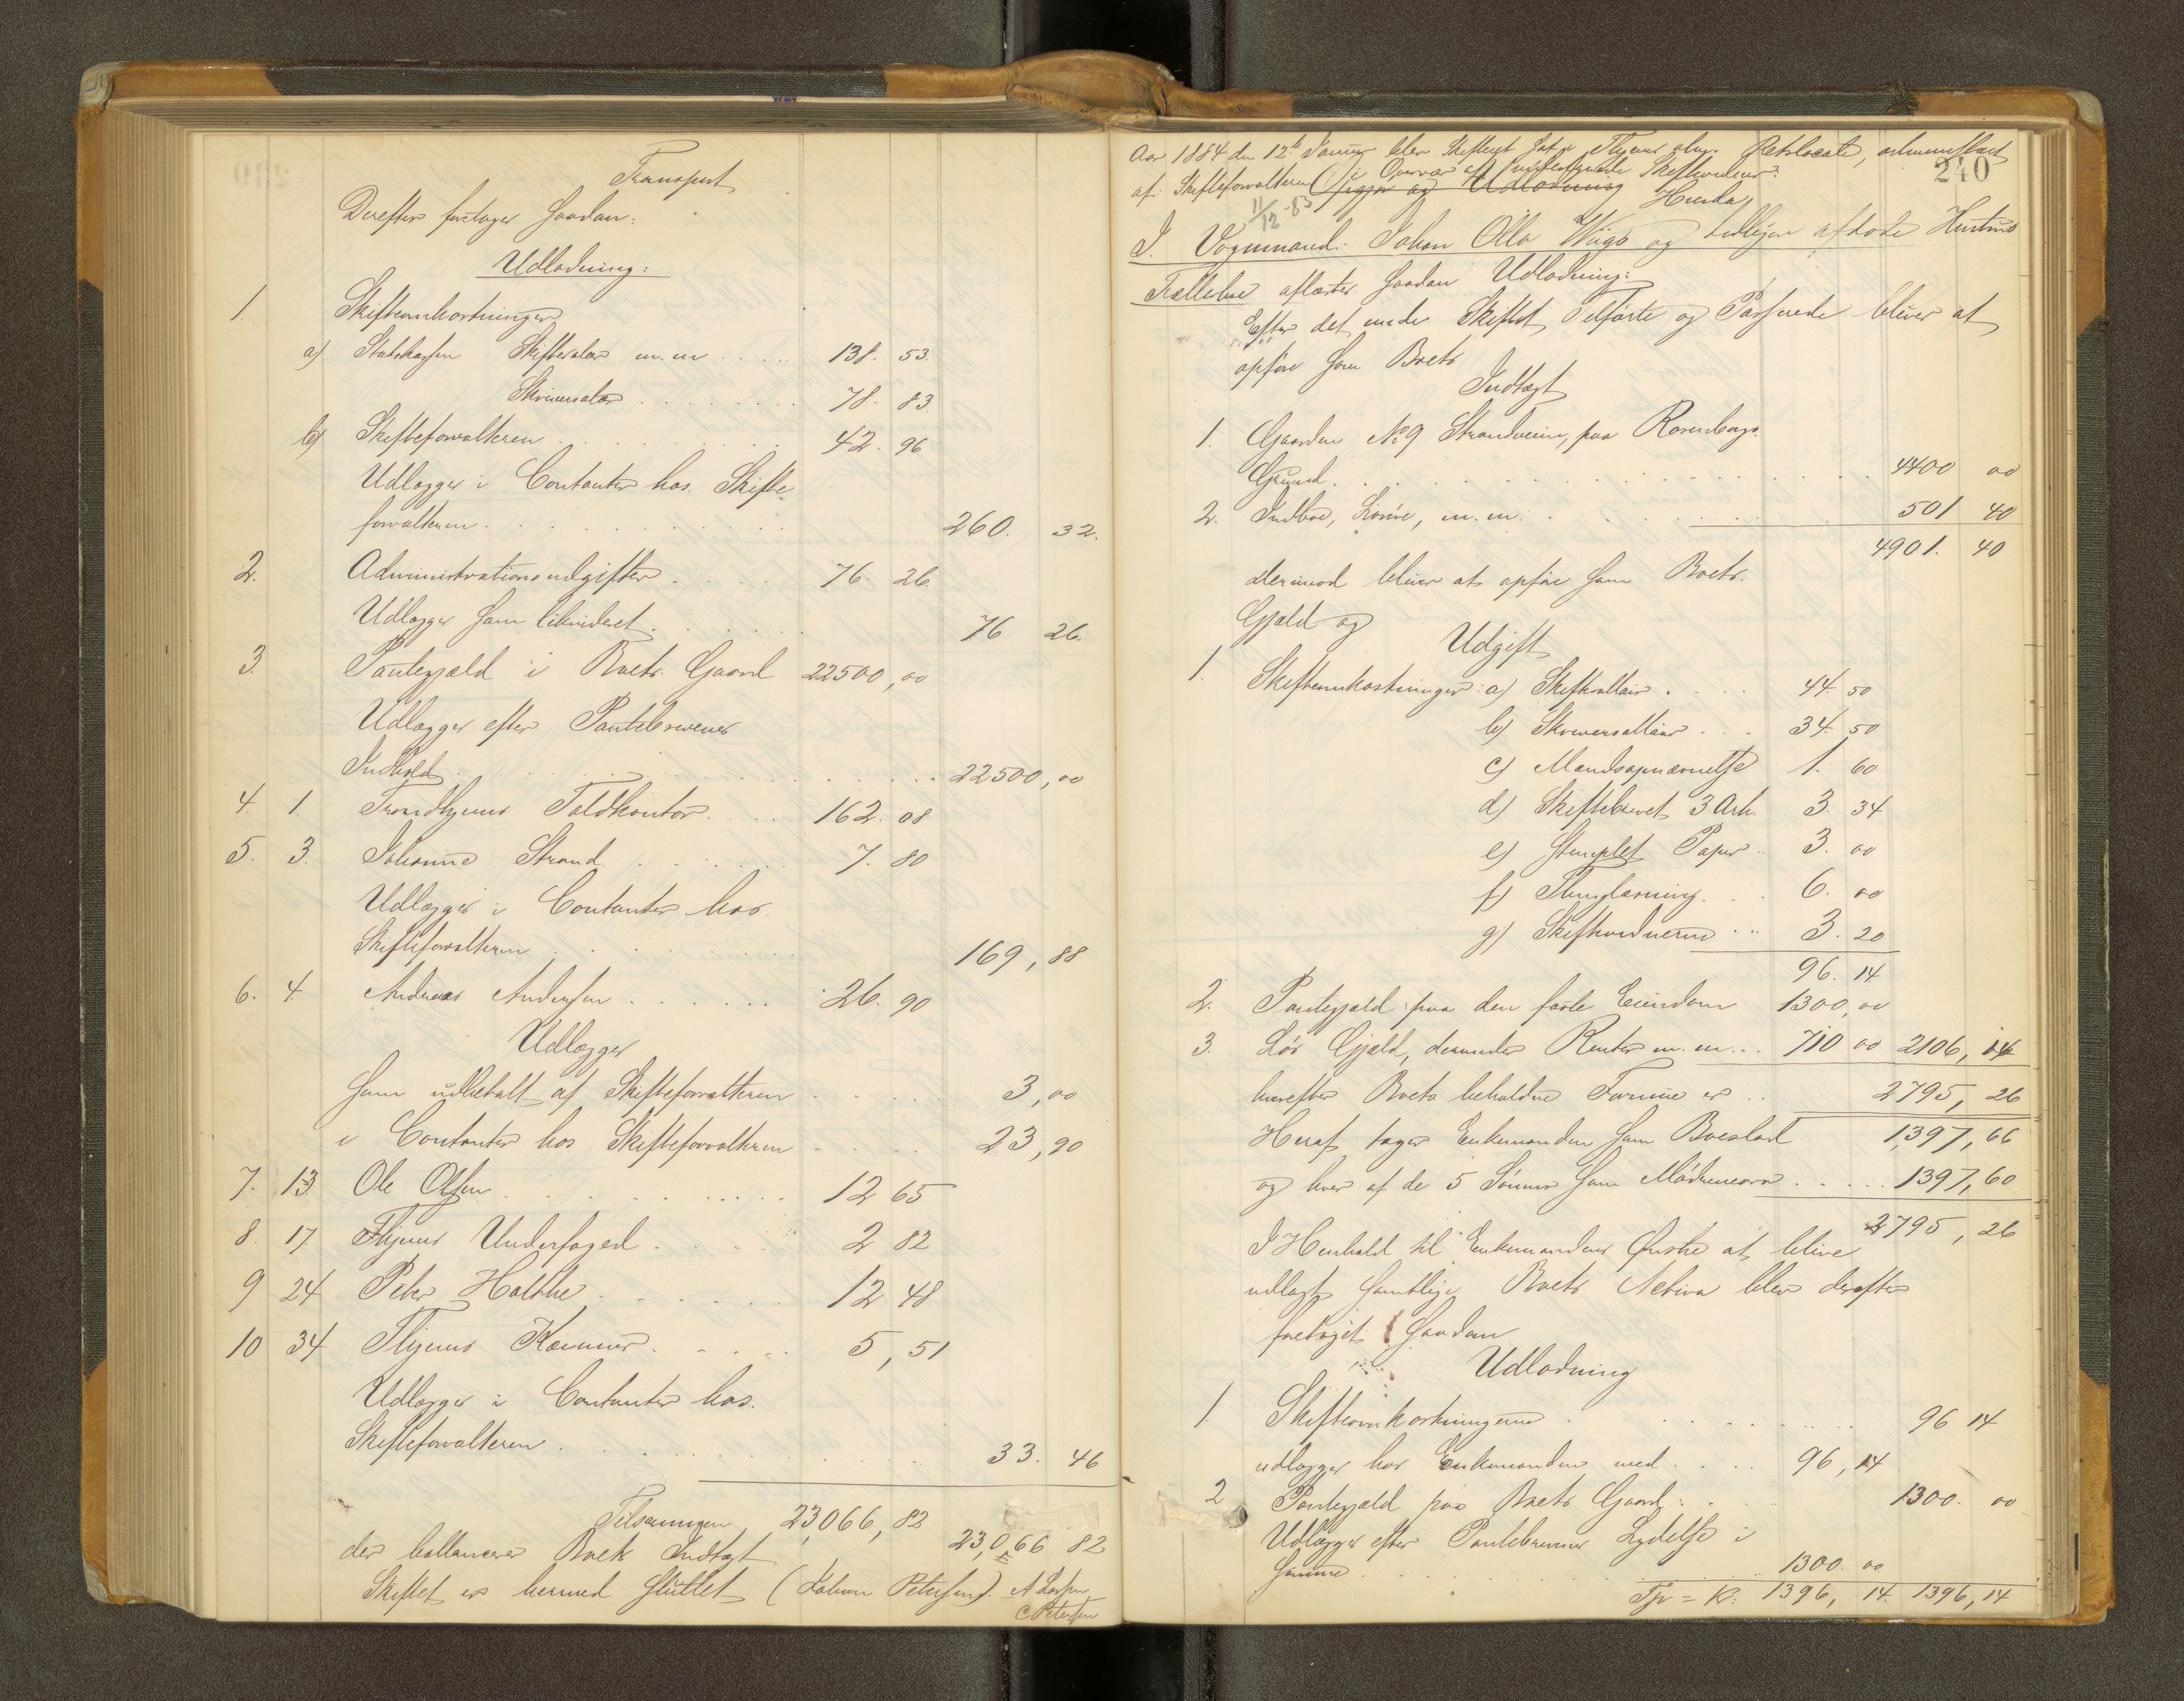 Transport
Derefter foretages saadan:
Udlodning:
1 Skifteomkostninger
a) Statskassen Skiftesalær m.m. 138. 53.
Skriversalær 78. 83
b) Skifteforvalteren 42. 96
Udlægges i Contanter hos Skifte-
forvalteren 260. 32.
2. Administrationsudgifter 76. 26
Udlægges som likvideret 76 26.
3. Pantegjæld i Boets Gaard 22500,00
Udlægges efter Pantebrevenes
Indhold 22500,00
4. 1. Trondhjems Toldkontor 162. 08
5. 3. Johanne Strand 7. 80
Udlægges i Contanter hos
Skifteforvalteren 169,88
6. 4. Andreas Andersen 26. 90
Udlægges
som udbetalt af Skifteforvalteren 3,00
i Contanter hos Skifteforvalteren 23,90
7. 13. Ole Olsen 12 65
8. 17. Thjems Underfoged 2 82
9 24 Peter Holthe 12 48
10 34 Thjems Kæmner 5,51
Udlægges i Contanter hos
Skifteforvalteren 33. 46
Tilsammen 23,066,82 23,066 82
der ballancerer Boets Indtægt
Skiftet er hermed sluttet (Johan Petersen). A Larsen
C Petersen
240
Aar 1884 den 12te Januar blev Skifteret sat i Thjems alm. Retslocale, administreret
af Skifteforvalteren i Overvær af undertegnede Skiftevidner.
Udlodning
11/12 83
I Vognmand Johan Olla Wügs og tidligere afdøde Hustrus
Fællesbo afsluttes saadan Udlodning:
Efter det under Skiftet Tilførte og Passerede bliver at
opføre som Boets
Indtægt
1. Gaarden No 9 Strandveien, paa Rosenborgs
Grund 4400 00
2. Indbo, Løsøre, m.m. 501 40
4901. 40
derimod bliver at opføre som Boets
Gjæld og
Udgift
1. Skifteomkostninger: a) Skiftesallair 44. 50
b) Skriversallair 34. 50
c) Mandsopnævnelse 1. 60
d) Skiftebrevet 3 Ark 3. 34
e) Stemplet Papir 3. 00
f) Thinglæsning 6. 00
g) Skiftevidnerne 3. 20
96. 14
2. Pantegjæld paa den faste Eiendom 1300,00
3. Løs Gjæld, derunder Renter m.m. 710 00 2106,14
hvorefter Boets beholdne Formue er 2795,26
Heraf tager Enkemanden som Boeslod 1,397,66
og hver af de 5 Sønner som Mødrenearv 1397,60
2795,26
I Henhold til Enkemandens Ønske at blive
udlagt samtlige Boets Activa blev derefter
foretaget saadan
Udlodning
1. Skifteomkostningerne 96 14
udlægges hos Enkemanden med 96,14
2 Pantegjæld paa Boets Gaard 1300. 00
Udlægges efter Pantebrevenes Lydelse i
samme 1300. 00
Tp = Kr. 1396, 14. 1396,14